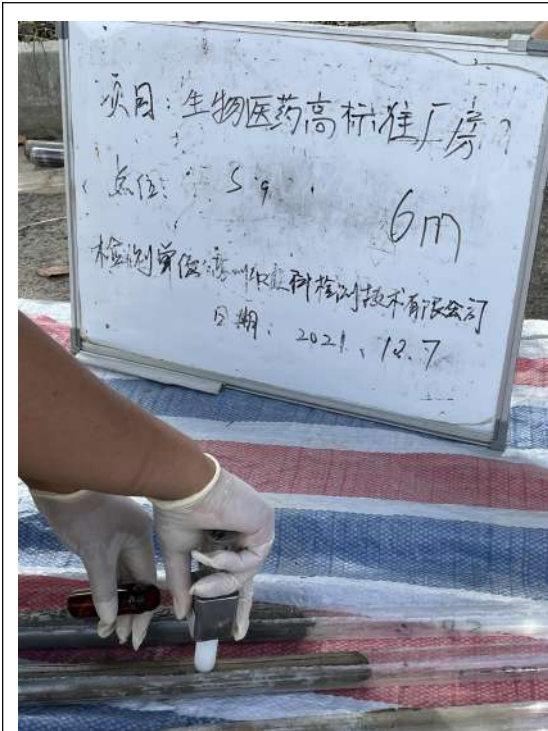 项目：生物医药高标准厂房
点位：S9
6m
检测单位：科检测技术有限公司
日期：2021.12.7